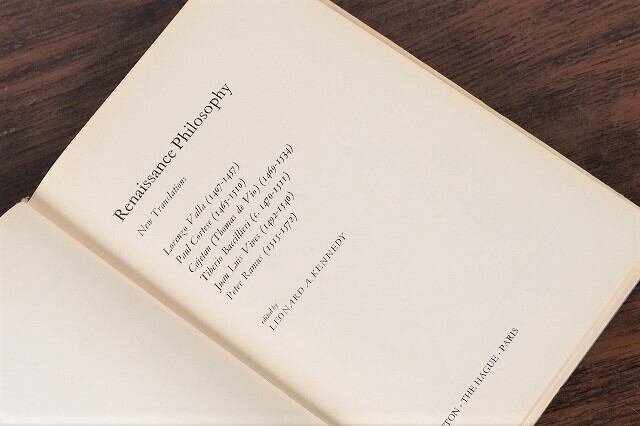 Renaissance Philosophy
New Translations
Lorenzo Valla (1407-1457)
Paul Cortese (1465-1510)
Cajetan (Thomas de Vio) (1469-1534)
Tiberio Baccilieri (c. 1470-1511)
Juan Luis Vives (1492-1540)
Peter Ramus (1515-1572)
edited by
LEONARD A. KENNEDY
TON · THE HAGUE · PARIS